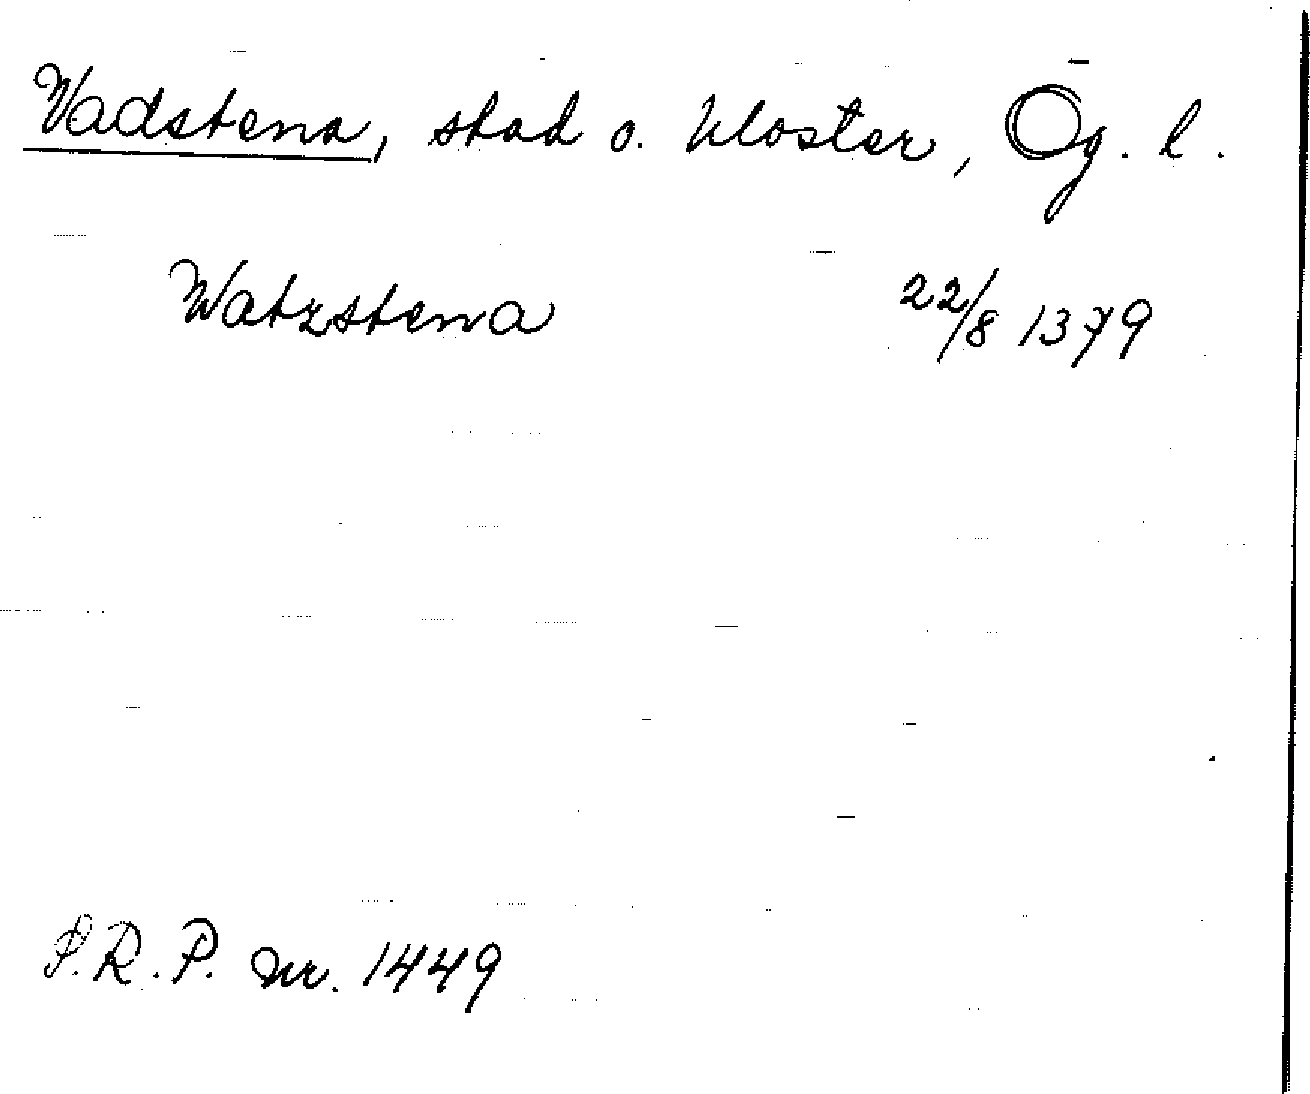 Vadstena, stad o. kloster, Ög. l.
Watzstena 22/8 1379
S.R.P. nr. 1449